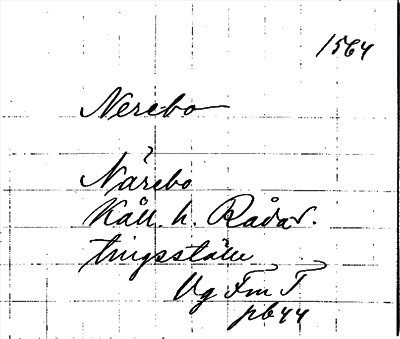 1564
Nerebo
?
Närebo
Kåll. h. Rådar.
tingsställe
Vg Fm T
pb44